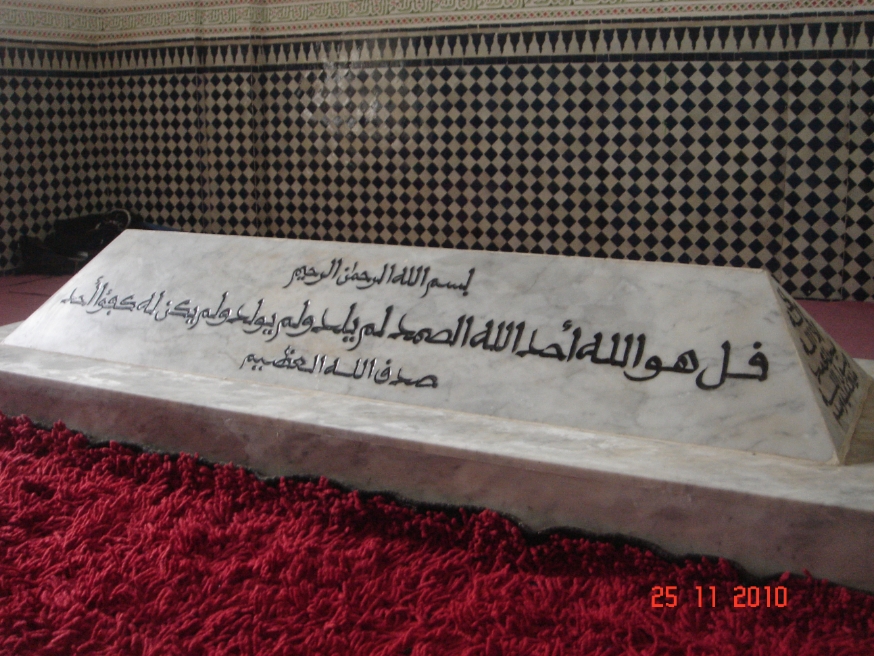 بسم الله الرحمان الرحيم
قل هو الله أحد الله الصمد لم يلد ولم يولد ولم يكن له كفؤا أحد
صدق الله العظيم
25 11 2010